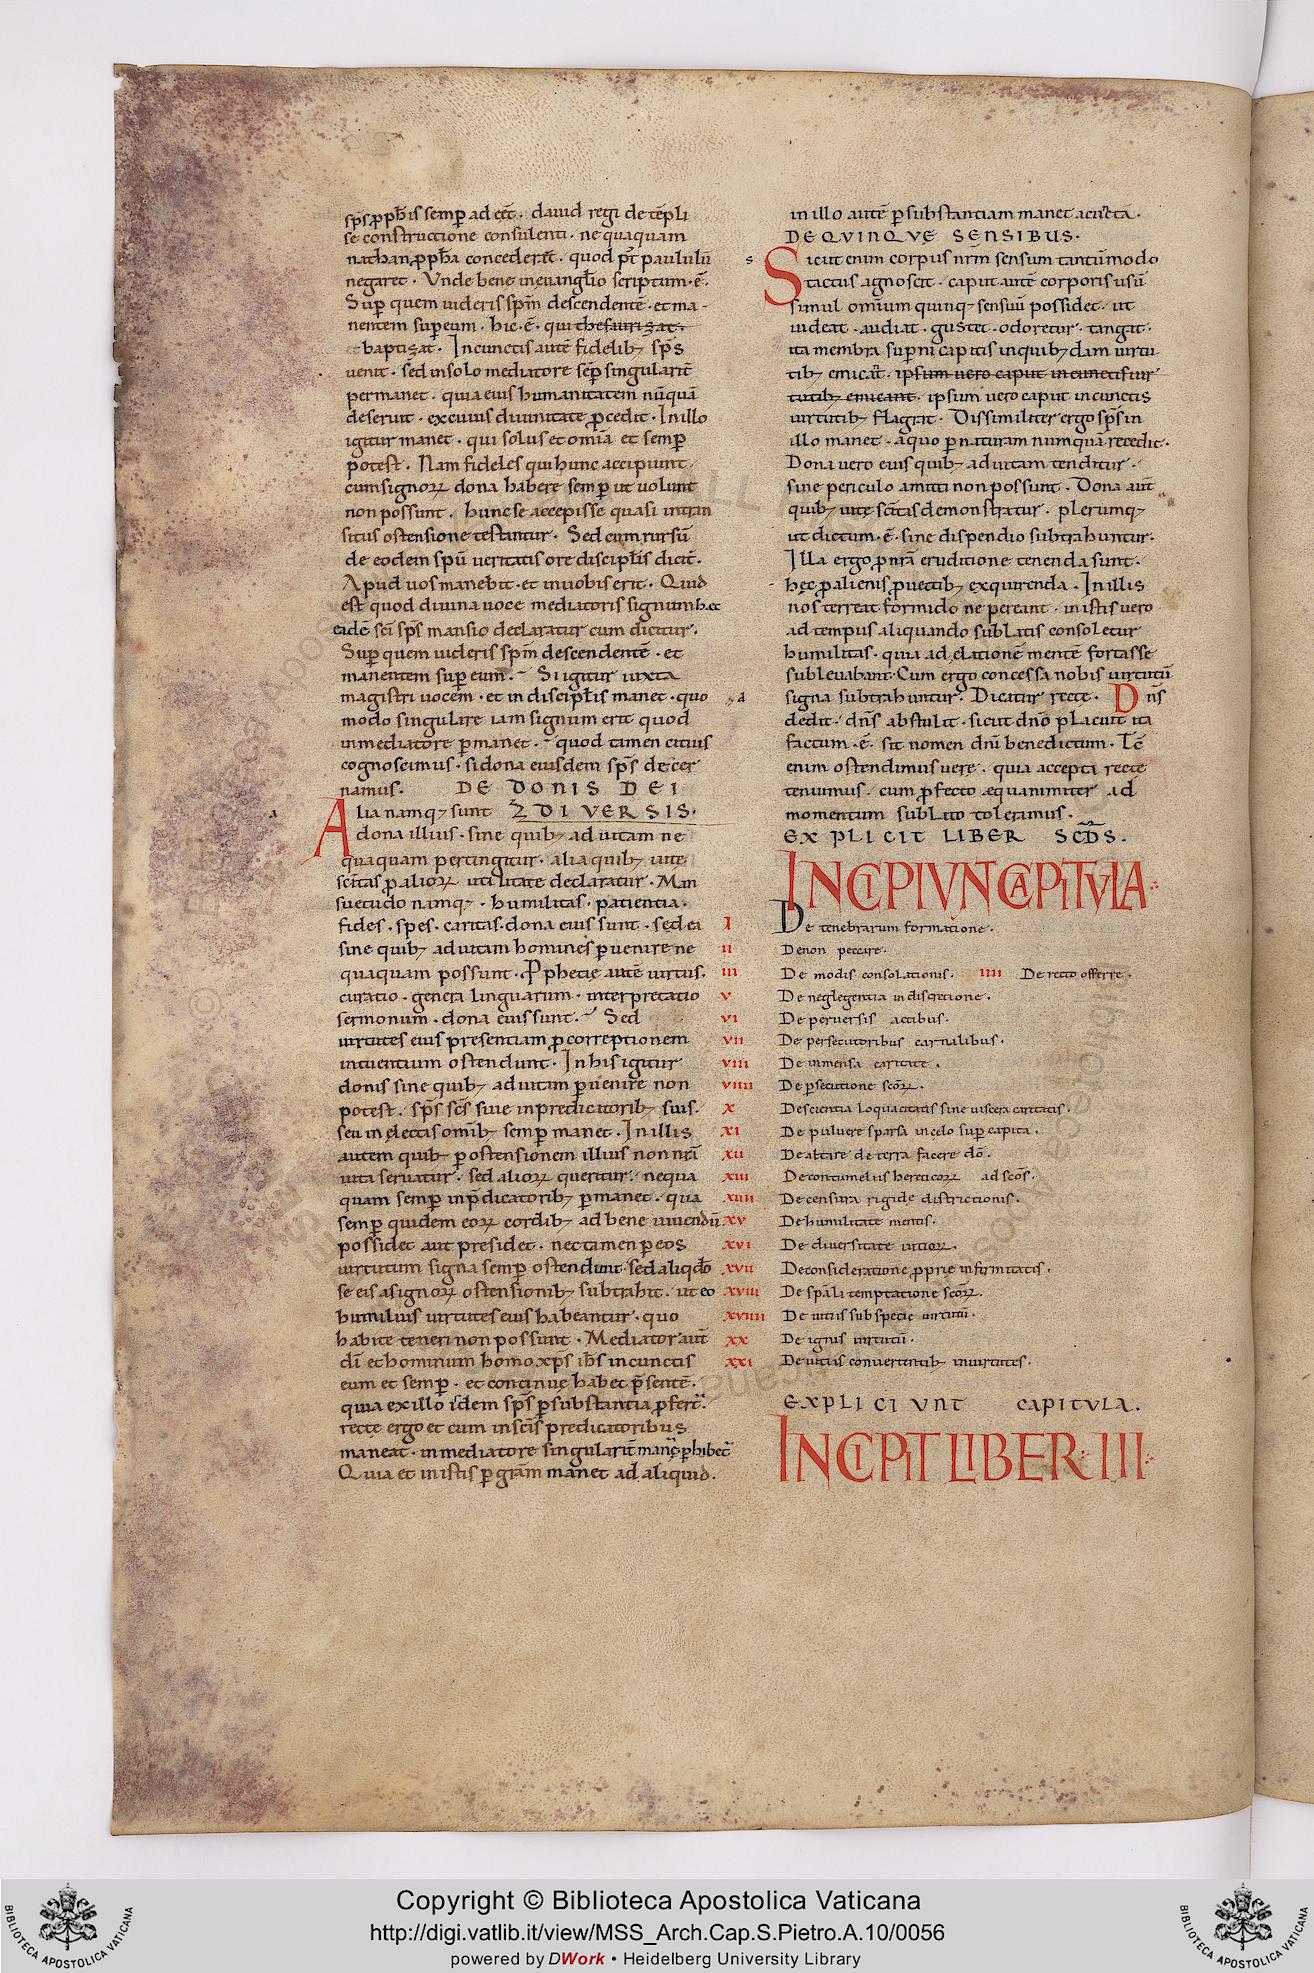 sp̄s ꝓph̄is semp̄ ad eēt · dauid regi de tēpli
se constructione consulenti · nequaquam
nathan ꝓph̄a concederet̄ · quod p̄t paululū
negaret · Vnde bene in euangl̄io scriptum · ē ·
Sup̄ quem uideris sp̄m descendentē · et ma-
nentem sup̄ eum · hic · ē · qui thesaurizat ·
baptizat · In cunctis autē fidelib; sp̄s
uenit · sed in solo mediatore sēp̄ singularit̄
permanet · quia eius humanitatem nūquā
deseruit · ex cuius diuinitate ꝓcedit · In illo
igitur manet · qui solus et omīa et semp̄
potest · Nam fideles qui hunc accipiunt
cum signoꝝ dona habere semp̄ ut uolunt
non possunt · hunc se accepisse quasi intran
situs ostensione testantur · Sed cum rursū
de eodem spū ueritatis ore discipl̄is dicit̄ ·
Apud uos manebit · et in uobis erit · Quid
est quod diuina uoce mediatoris signum hec
eadē sc̄i sp̄s mansio declaratur cum dicitur ·
Sup̄ quem uideris sp̄m descendentē · et
manentem sup̄ eum · Si igitur iuxta
magistri uocem · et in discipl̄is manet · quo
modo singulare iam signum erit quod
in mediatore p̄manet · quod tamen citius
cognoscimus · si dona eiusdem sp̄s decer
namus · DE DONIS DEI
Alia namq; sunt DIVERSIS ·
dona illius · sine quib; ad uitam ne
quaquam pertingitur · alia quib; uitę
sc̄itas ꝓ alioꝝ utilitate declaratur · Man
suetudo namq; · humilitas · patientia ·
fides · spes · caritas · dona eius sunt · sed ea
sine quib; ad uitam homines p̄uenire ne
quaquam possunt · Ꝓphetię autē uirtus ·
curatio · genera linguarum · interpretatio
sermonum · dona eius sunt · Sed
uirtutes eius presentiam ꝓ correptionem
intuentium ostendunt · In his igitur
donis sine quib; ad uitam p̄uenire non
potest · sp̄s sc̄s siue in predicatorib; suis ·
seu in electis omīb; semp̄ manet · In illis
autem quib; p̄ ostensionem illius non nrā
uita seruatur · sed alioꝝ queritur · nequa
quam semp̄ in p̄dicatorib; p̄manet · quia
semp̄ quidem eoꝝ cordib; ad bene uiuendū
possidet aut presidet · nec tamen p̄ eos
uirtutum signa semp̄ ostendunt · sed aliqdo
se eis a signoꝝ ostensionib; subtrahit · ut eo
humilius uirtutes eius habeantur · quo
habitę teneri non possunt · Mediator aut̄
dī et hominum homo xp̄s ih̄s in cunctis
eum et semp̄ · et continue habet p̄sentē ·
quia ex illo idem sp̄s p̄ substantia ꝓfert̄ ·
recte ergo et cum in sc̄is predicatoribus
maneat · in mediatore singularit̄ manē p̄hibet̄
Quia et in istis p̄ grām manet ad aliquid ·
in illo autē p̄ substantiam manet ad cuncta ·
DE QVINQVE SENSIBUS ·
Sicut enim corpus nr̄m sensum tantūmodo
tactus agnoscit · caput autē corporis usū
simul omnium quinq; sensuū possidet · ut
uideat · audiat · gustet · odoretur · tangat ·
ita membra sup̄ni capitis in quib;dam uirtu
tib; emicat̄ · ipsum uero caput in cunctis uir
tutib; emicant · ipsum uero caput in cunctis
uirtutib; flagrat · Dissimiliter ergo sp̄s in
illo manet · a quo p̄ naturam numquā recedit ·
Dona uero eius quib; ad uitam tenditur ·
sine periculo amitti non possunt · Dona aut̄
quib; uitę sc̄itas demonstratur · plerumq;
ut dictum · ē · sine dispendio subtrahuntur ·
Illa ergo ꝓ nrā eruditione tenenda sunt ·
hęc ꝓ alienis ꝓuectib; exquirenda · In illis
nos terreat formido ne pereant · in istis uero
ad tempus aliquando sublatis consoletur
humilitas · quia ad elationē mentē fortasse
subleuabant · Cum ergo concessa nobis uirtutū
signa subtrahuntur · Dicatur recte · Dn̄s
dedit · dn̄s abstulit · sicut dn̄o placuit ita
factum · ē · sit nomen dn̄i benedictum · Tē
enim ostendimus uere · quia accepta recte
tenuimus · cum ꝓfecto equanimiter ad
momentum sublato toleramus ·
EXPLICIT LIBER SCD̄S ·
INCIPIVNT CAPITVLA ·
I De tenebrarum formatione ·
II De non peccare ·
III De modis consolationis · IIII De recto offerre ·
V De neglegentia indiscretione ·
VI De peruersis actibus ·
VII De persecutoribus carnalibus ·
VIII De inmensa caritate ·
VIIII De p̄secutione sc̄oꝝ ·
X De scientia loquacitatis sine uiscera caritatis ·
XI De puluere sparsa in celo sup̄ capita ·
XII De altare de terra facere dō ·
XIII De contumeliis hereticoꝝ ad sc̄os ·
XIIII De censura rigide districtionis ·
XV De humilitate mentis ·
XVI De diuersitate uitioꝝ ·
XVII De consideratione ꝓprie infirmitatis ·
XVIII De spālī temptatione sc̄oꝝ ·
XVIIII De uitiis sub specie uirtutū ·
XX De ignis uirtutū ·
XXI De uitiis conuertentib; in uirtutes ·
EXPLICIVNT CAPITVLA ·
INCIPIT LIBER · III ·
Copyright © Biblioteca Apostolica Vaticana
http://digi.vatlib.it/view/MSS_Arch.Cap.S.Pietro.A.10/0056
powered by DWork • Heidelberg University Library
BIBLIOTECA APOSTOLICA VATICANA
BIBLIOTECA APOSTOLICA VATICANA